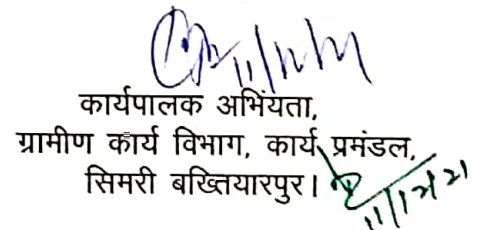 11/12/21
कार्यपालक अभिंयता,
ग्रामीण कार्य विभाग, कार्य प्रमंडल,
सिमरी बख्तियारपुर।
11/12/21